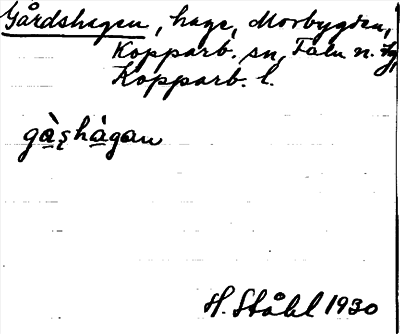 Gårdshagen, hage, Morbygden,
Kopparb. sn, Falu n. tg,
Kopparb. l.
gàʂhàgan
H. Ståhl 1930